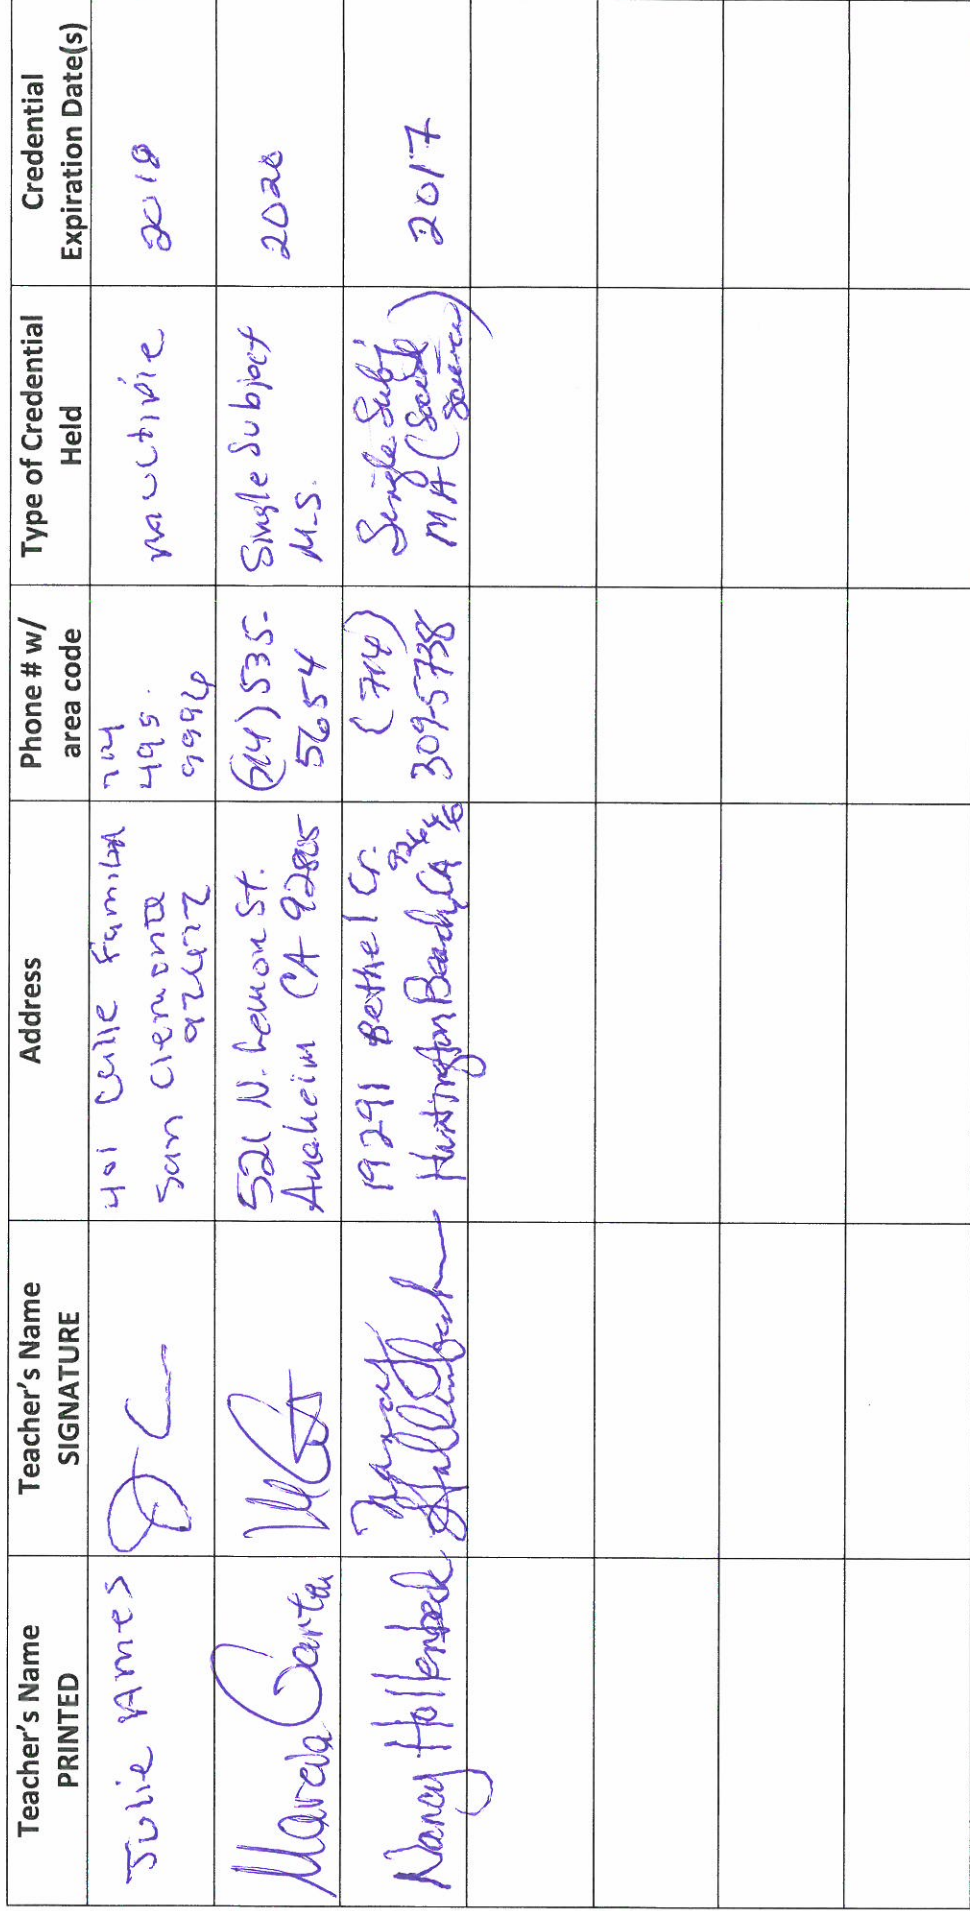 Teacher's Name PRINTED
Teacher's Name SIGNATURE
Address
Phone # w/ area code
Type of Credential Held
Credential Expiration Date(s)
Julie Ames
401 Calle Familia
San Clemente
92672
714
495.
9994
multiple
2018
521 N. Lemon St.
Anaheim CA 92805
(714) 535-
5654
Single Subject
M.S.
2020
Nancy Hollenbeck
Nancy
Hollenbeck
19291 Bethel Cr.
Huntington Beach, CA
92646
(714)
309-5738
Single Subj
MA (Social
Science)
2017